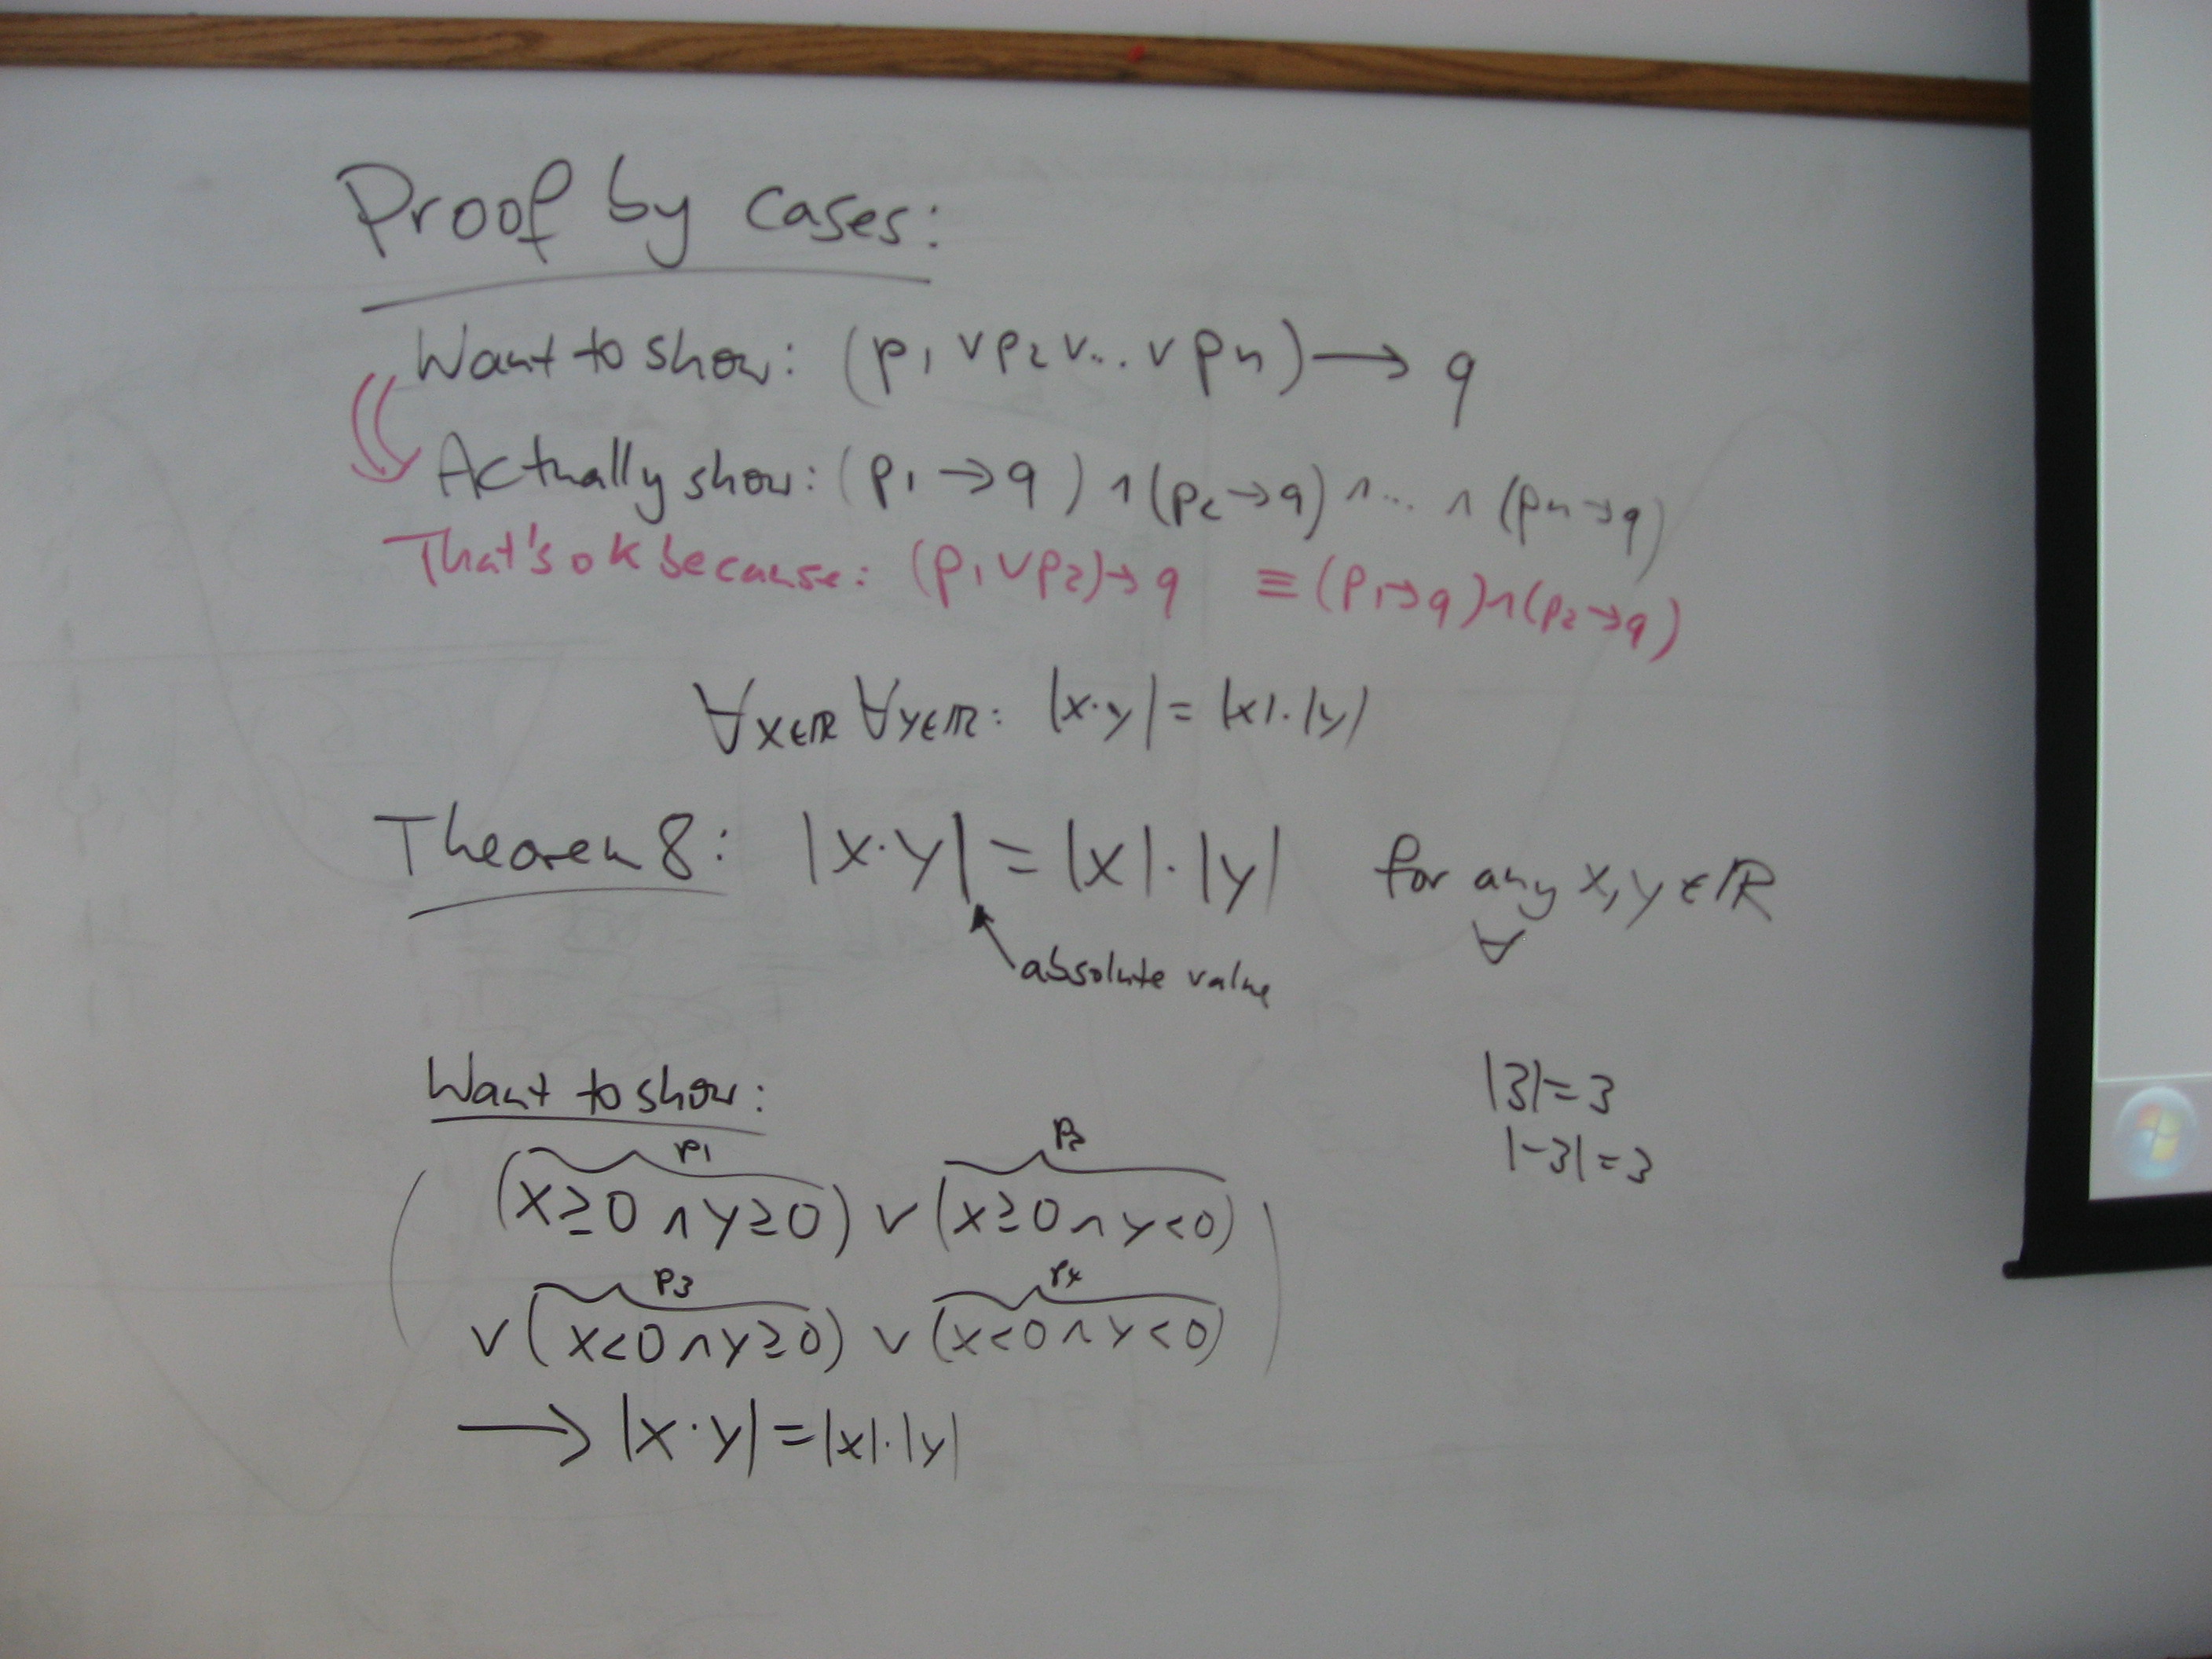 Proof by cases:
Want to show: (p₁ ∨ p₂ ∨ ... ∨ pₙ) → q
Actually show: (p₁ → q) ∧ (p₂ → q) ∧ ... ∧ (pₙ → q)
That's ok because: (p₁ ∨ p₂) → q ≡ (p₁ → q) ∧ (p₂ → q)
∀x∈ℝ ∀y∈ℝ: |x·y| = |x|·|y|
Theorem 8: |x·y| = |x|·|y| for any x, y ∈ ℝ
∀
absolute value
Want to show:
|3| = 3
|-3| = 3
p₁ p₂
( (x ≥ 0 ∧ y ≥ 0) ∨ (x ≥ 0 ∧ y < 0)
p₃ p₄
∨ (x < 0 ∧ y ≥ 0) ∨ (x < 0 ∧ y < 0) )
→ |x·y| = |x|·|y|